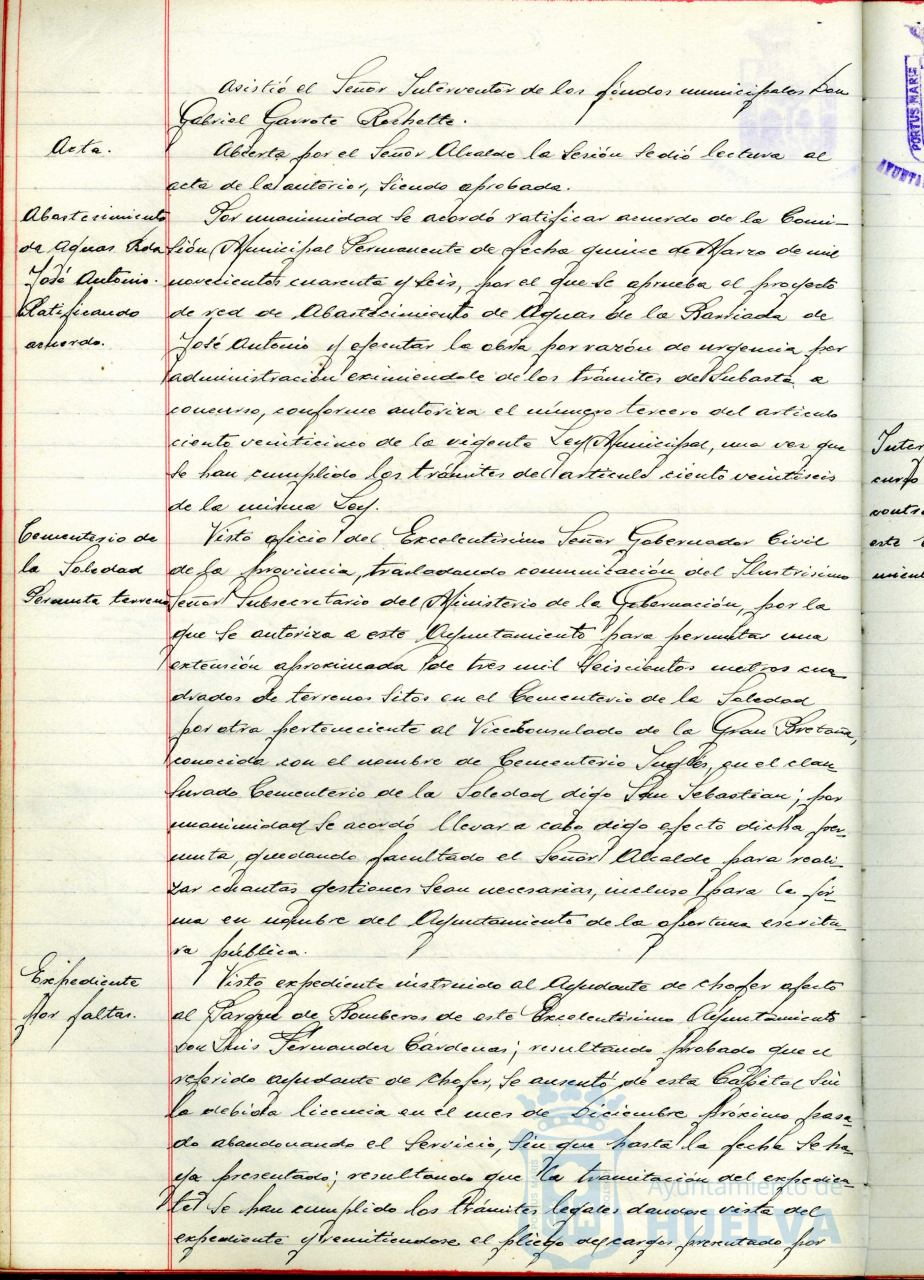 Asistió el Señor Interventor de los fondos municipales Don
Gabriel Garrote Rochette.
Acta.
Abierta por el Señor Alcalde la Sesión se dió lectura al
acta de la anterior, siendo aprobada.
Abastecimiento
de Aguas Bda
José Antonio.
Ratificando
acuerdo.
Por unanimidad se acordó ratificar acuerdo de la Comi-
sión Municipal Permanente de fecha quince de Marzo de mil
novecientos cuarenta y seis, por el que se aprueba el proyecto
de red de Abastecimiento de Aguas de la Barriada de
José Antonio y ejecutar la obra por razón de urgencia por
administración eximiendole de los trámites de Subasta o
concurso, conforme autoriza el número tercero del articulo
ciento veinticinco de la vigente Ley Municipal, una vez que
se han cumplido los trámites del articulo ciento veintiseis
de la misma Ley.
Cementerio de
la Soledad
Permuta terreno
Visto oficio del Excelentisimo Señor Gobernador Civil
de la provincia, trasladando comunicación del Ilustrisimo
Señor Subsecretario del Ministerio de la Gobernación, por la
que se autoriza a este Ayuntamiento para permutar una
extensión aproximada de tres mil seiscientos metros cua-
drados de terrenos sitos en el Cementerio de la Soledad
por otra perteneciente al Viceconsulado de la Gran Bretaña,
conocida con el nombre de Cementerio Inglés, en el clau-
surado Cementerio de la Soledad digo San Sebastian; por
unanimidad se acordó llevar a cabo digo efecto dicha per-
muta, quedando facultado el Señor Alcalde para reali-
zar cuantas gestiones sean necesarias, incluso para la fir-
ma en nombre del Ayuntamiento de la oportuna escritu-
ra pública.
Expediente
por faltas.
Visto expediente instruido al Ayudante de chofer afecto
al Parque de Bomberos de este Excelentisimo Ayuntamiento
Don Luis Fernandez Cárdenas; resultando probado que el
referido ayudante de chofer, se ausentó de esta Capital sin
la debida licencia en el mes de Diciembre próximo pasa-
do abandonando el servicio, sin que hasta la fecha se ha-
ya presentado; resultando que la tramitación del expedien-
te se han cumplido los trámites legales dandose vista del
expediente y remitiendose el pliego de cargos presentado por
Ayuntamiento de
HUELVA
PORTUS MARIS